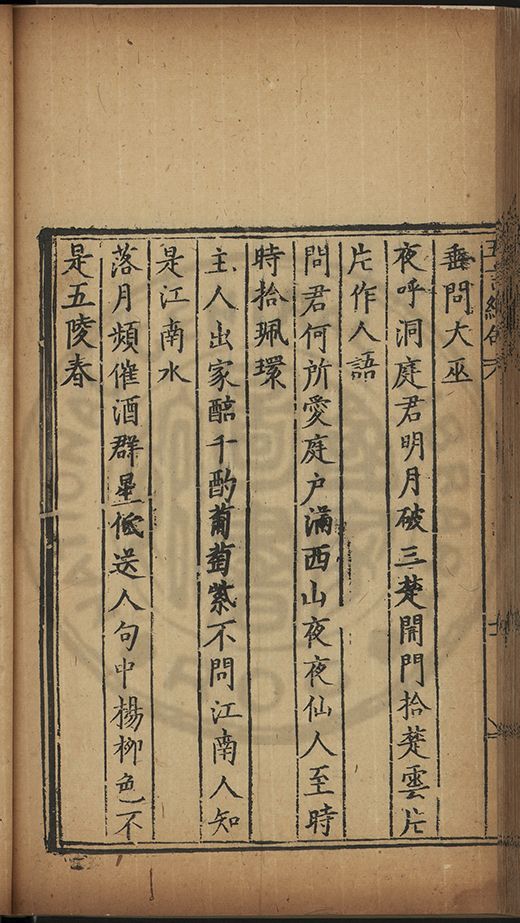 五言絶句
垂問大巫
夜呼洞庭君明月破三楚開門拾楚雲片
片作人語
問君何所愛庭户滿西山夜夜仙人至時
時拾珮環
主人出家醅千酌葡萄紫不問江南人知
是江南水
落月頻催酒群星低送人句中楊柳色不
是五陵春